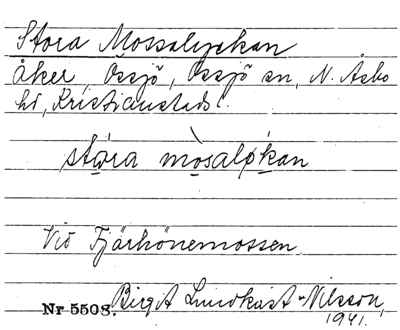 Stora Mossalyckan
Åker, Össjö, Össjö sn, N. Åsbo
hd, Kristianstads l.
stora mosalykan
Vid Fjärhönemossen
Birgit Lundkvist-Nilsson,
Nr 5508. 1941.